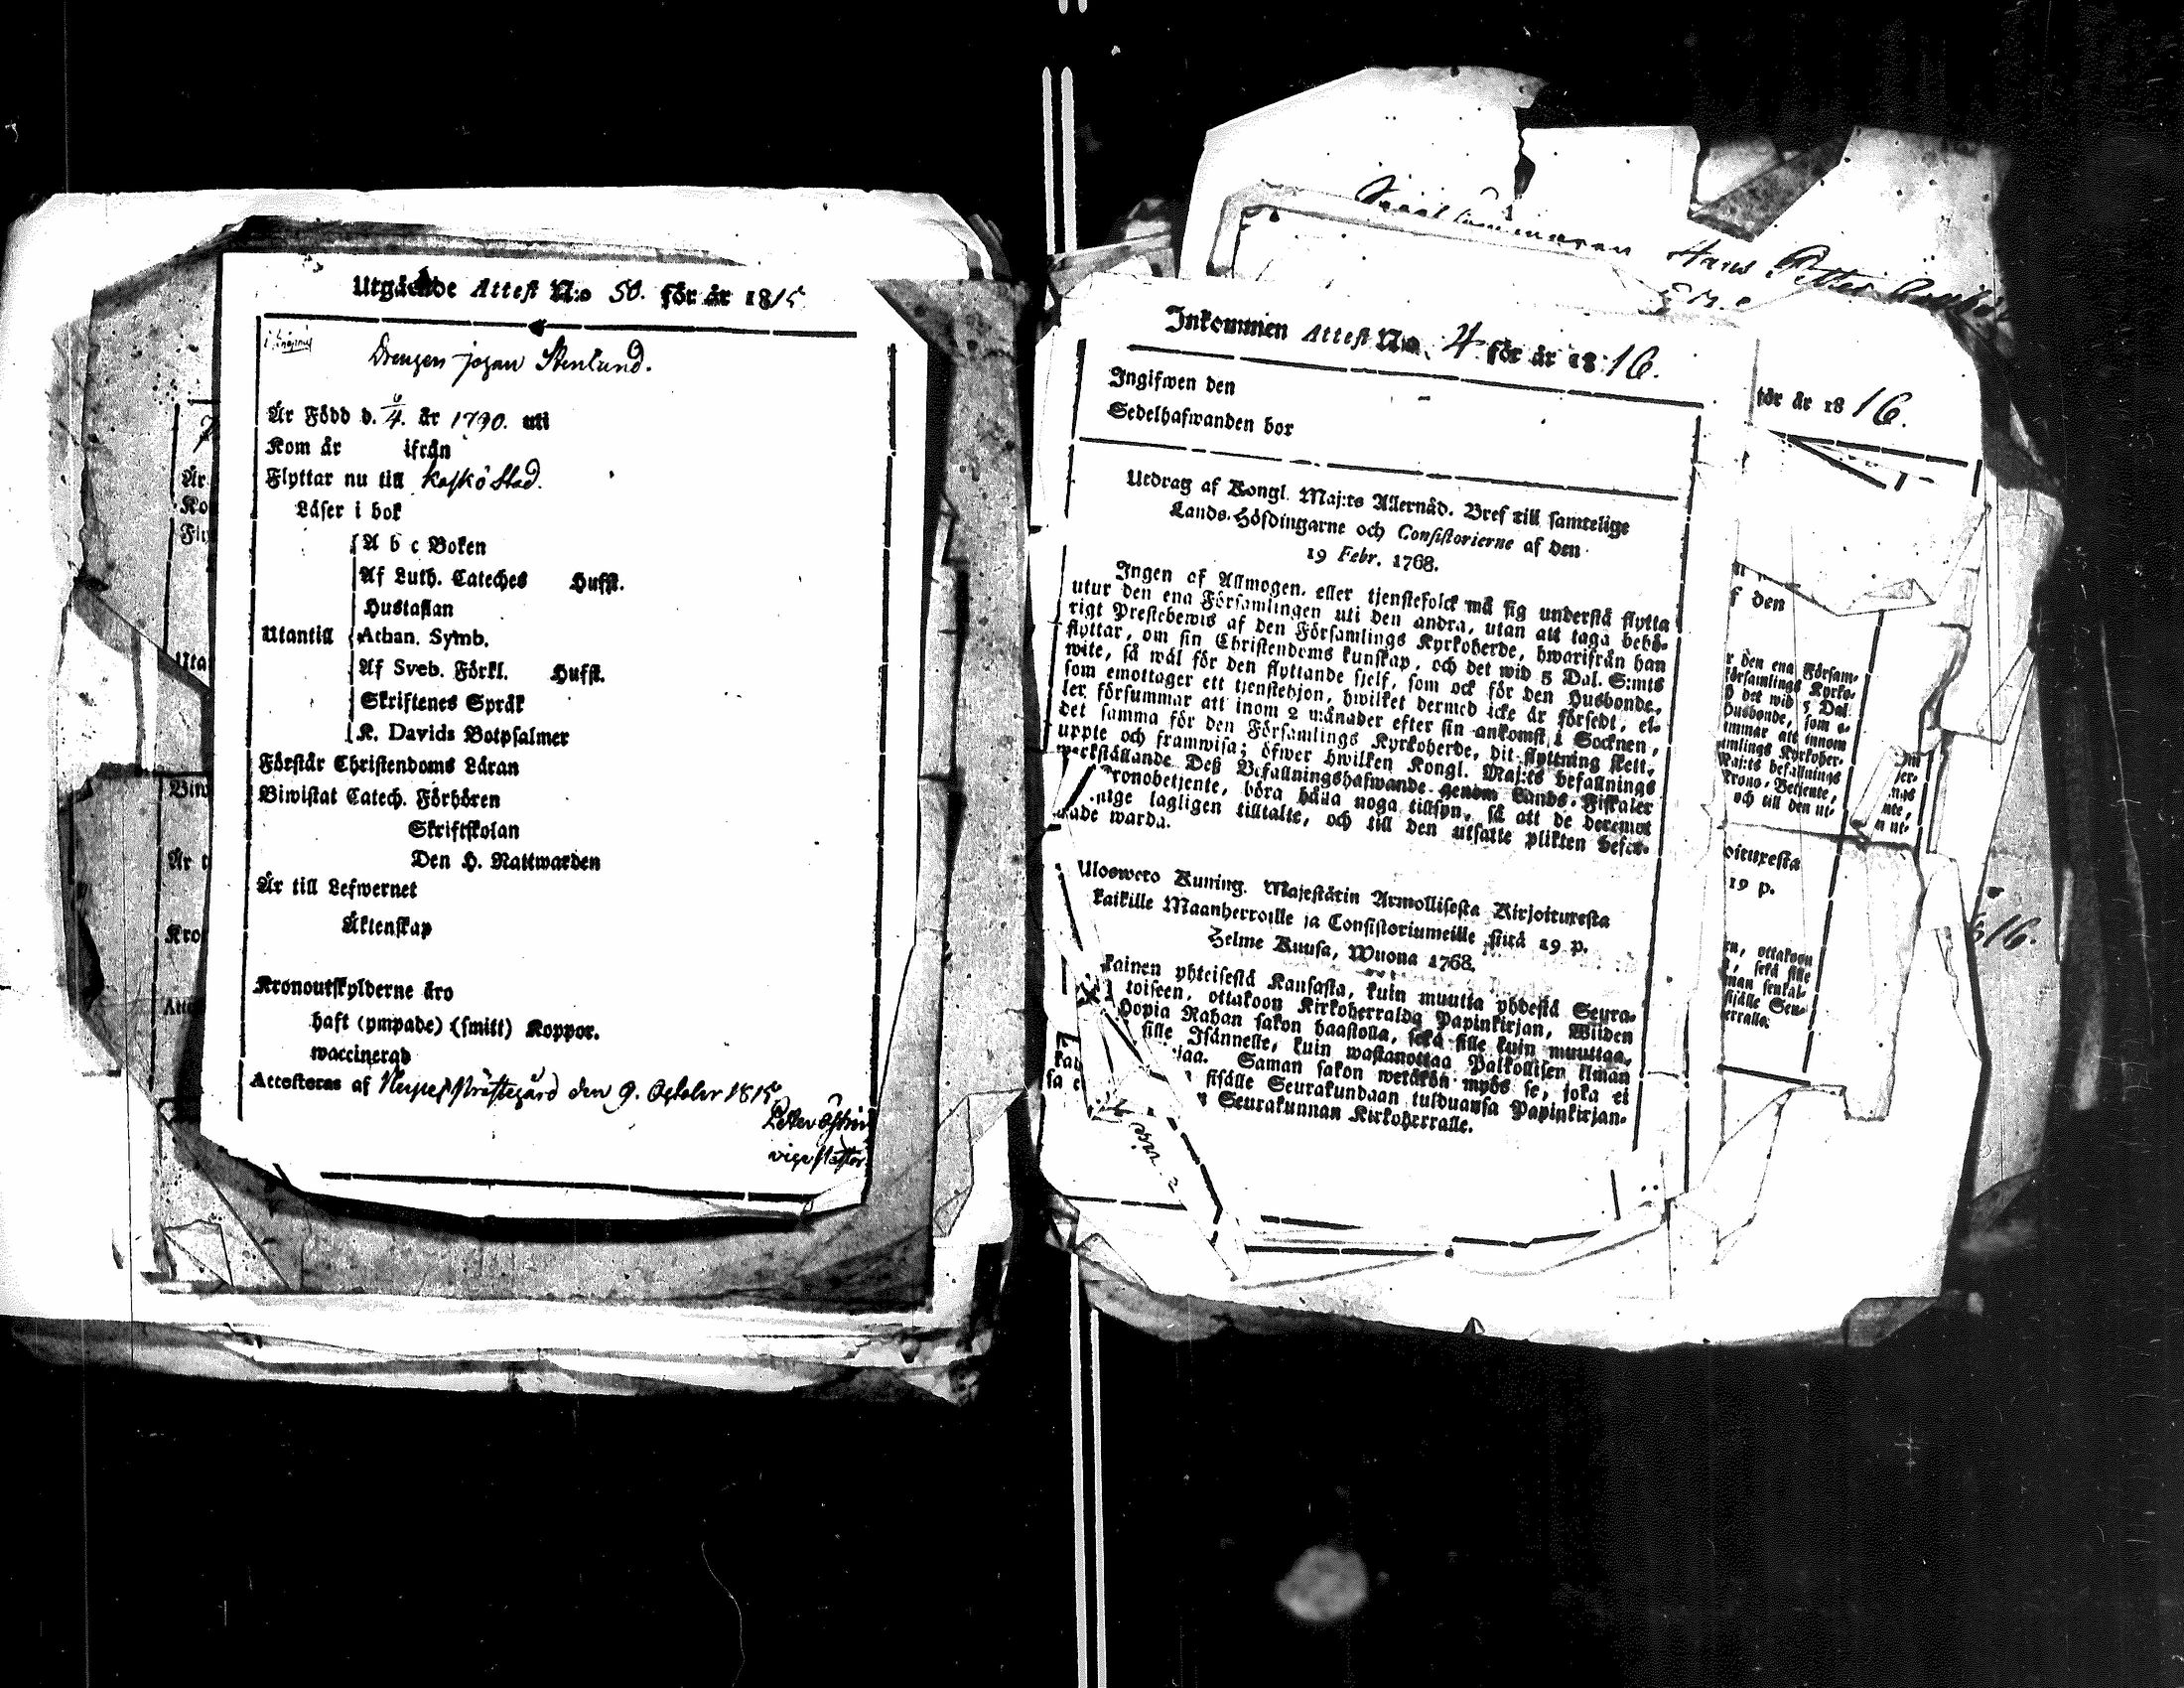 Utgående Attest N:o 50. för år 1815
Drengen johan Stenlund.
Är Född d. 6/4. år 1790. uti
Kom år ifrån
Flyttar nu till Kaskö Stad.
Läser i bok
A b c Boken
Af Luth. Cateches Husfl.
Hustaflan
Utantill Athan. Symb.
Af Sveb. Förkl. Husfl.
Skriftenes Språk
K. Davids Botpsalmer
Förstår Christendoms Läran
Biwistat Catech. Förhören
Skriftskolan
Den H. Nattwarden
Är till Lefwernet
Äktenskap
Kronoutskylderne äro
haft (ympade) (smitt) Koppor.
waccinerad
Attesteras af Prästegård den 9. October 1815
Petter
vice Pastor
Inkommen Attest N:o 4 för år 1816.
Ingifwen den
Sedelhafwanden bor
Utdrag af Kongl. Maj:ts Allernåd. Bref till samtelige
Lands-Höfdingarne och Consistorierne af den
19 Febr. 1768.
Ingen af Allmogen eller tjenstefolck må sig understå flytta
utur den ena Församlingen uti den andra, utan att taga behö-
rigt Prestebewis af den Församlings Kyrkoherde, hwarifrån han
flyttar, om sin Christendoms kunskap, och det wid 5 Dal. S:mts
wite, så wäl för den flyttande sjelf, som ock för den Husbonde,
som emottager ett tjenstehjon, hwilket dermed icke är försedt, el-
ler försummar att inom 2 månader efter sin ankomst i Socknen,
det samma för den Församlings Kyrkoherde, dit flyttning skett,
uppte och framwisa; öfwer hwilken Kongl. Maj:ts befallnings
werkställande Deß Befallningshafwande genom Lands-Fiskaler
Kronobetjente, böra hålla noga tillsyn, så att de deremot
lagligen tilltalte, och till den utsatte plikten befor-
rade warda.
Uloswero Kuning. Majestätin Armollisesta Kirjoituresta
kaikille Maanherroille ja Consistoriumeille siitä 19 p.
Helme Kuusa, Wuona 1768.
kainen yhteisestä Kansasta, kuin muutta yhdestä Seura-
toiseen, ottakoon Kirkoherralda Papinkirjan, Wiiden
Hopia Rahan sakon haastolla, sekä sille kuin muuttaa,
sille Isännelle, kuin wastanottaa Palkollisen ilman
Saman sakon wetäkön myös se, joka ei
sisälle Seurakundaan tulduansa Papinkirjan-
Seurakunnan Kirkoherralle.
Hans Petter
för år 1816.
f den
r den ena Försam-
församlings Kyrko-
det wid 5 Dal.
Husbonde, som e-
ummar att innom
Maj:ts befallnings
Krono-Betjente,
och till den ut-
oituresta
19 p.
ottakoon
sekä sille
sisälle Seu-